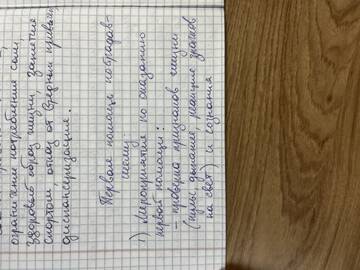 ограничение потребление соли,
здоровый образ жизни, занятие
спортом, отказ от вредных привычек,
диспансеризация.
Первая помощь пострадав-
шему.
1) Мероприятия по оказанию
первой помощи:
– проверка признаков жизни
(пульс, дыхание, реакция зрачков
на свет) и сознания